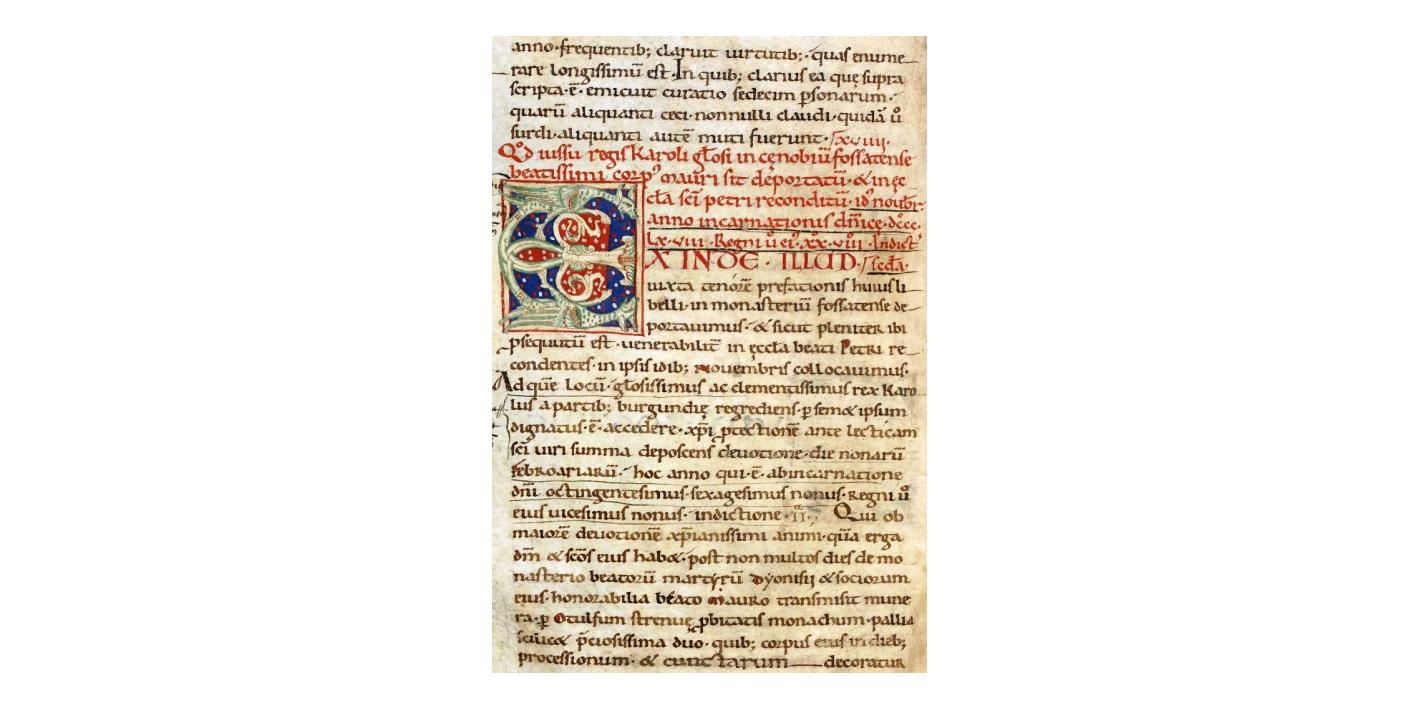 anno·frequentib; claruit uirtutib;· quas enume
rare longissimū est· In quib; clarius ea quę supra
scripta·ē· emicuit curatio sedecim psonarum·
quarū aliquanti ceci· nonnulli claudi· quidā ů
surdi· aliquanti autē muti fuerunt· xxuiiii·
Qd iussu regis Karoli glosi in cęnobiū fossatense
beatissimi corp' mauri sit deportatū· & in ęc
cla sci petri reconditū· id' noubr·
anno incarnationis dn̄icę· dccc·
lx·viii· Regni ů ei' xx·viiii· Indict
X INDE · ILLUD· scda·
iuxta tenorē prefationis huius li
belli· in monasteriū fossatense de
portauimus· & sicut pleniter ibi
psequutū est· uenerabilit̄ in ęccla beati Petri re
condentes· in ipsis idib; nouembris collocauimus·
Ad quē locū· glosissimus ac clementissimus rex Karo
lus a partib; burgundię regrediens· p sem& ipsum
dignatus·ē· accedere· xp̄i ptectionē ante lecticam
sci uiri summa deposcens deuotione· die nonarū
februariarū· hoc anno qui·ē· ab incarnatione
dn̄i octingentesimus· sexagesimus nonus· Regni ů
eius uicesimus nonus· indictione ·ii· Qui ob
maiorē deuotionē xp̄ianissimi animi· quā erga
dm̄ & scos eius hab&· post non multos dies de mo
nasterio beatorū martyrū dyonisii & sociorum
eius· honorabilia beato mauro transmisit mune
ra· p Otulfum strenuę pbitatis monachum· pallia
scilic& p̄ciosissima duo· quib; corpus eius in dieb;
processionum· & cunctarum decoratur